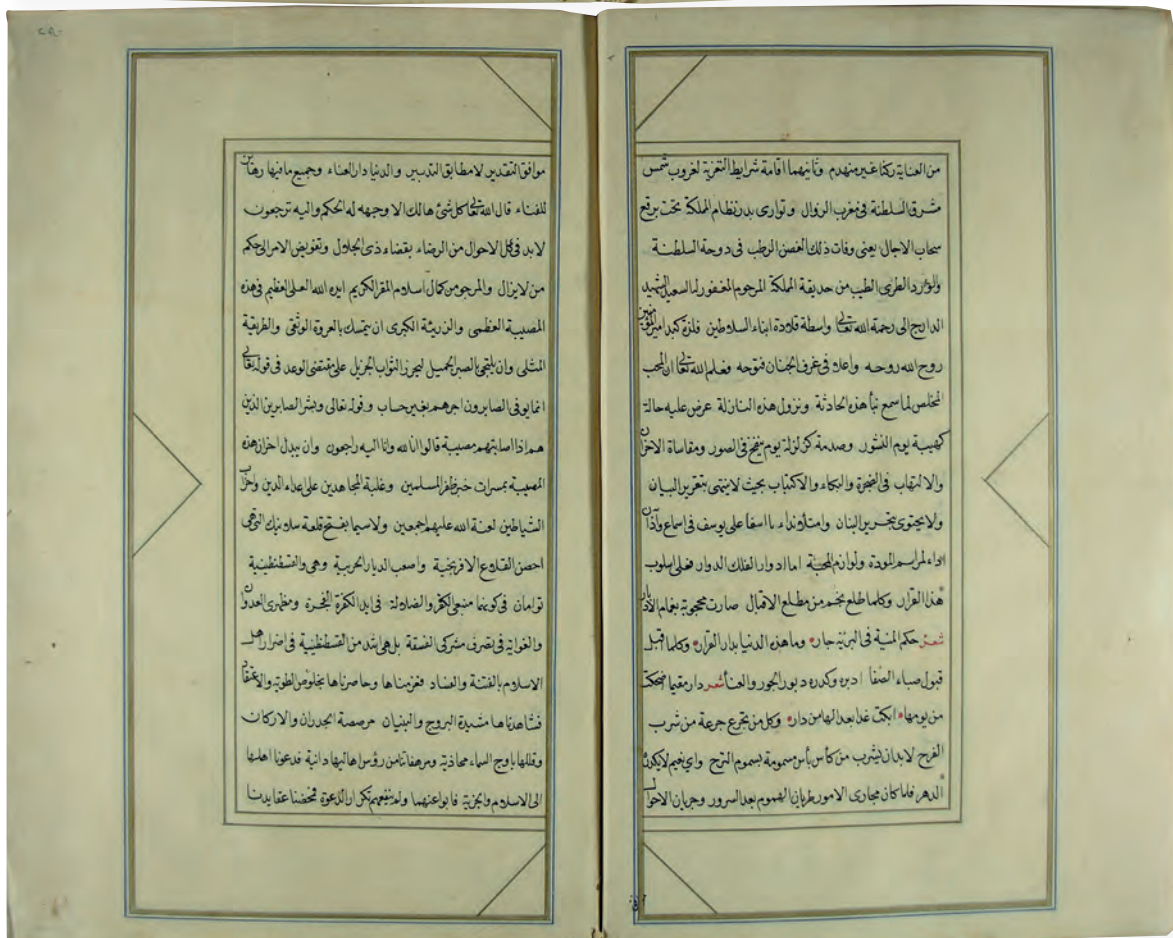 من العناية ركنا غير منهدم وثانيهما اقامة شرايط التعزية لغروب شمس
مشرق السلطنة فى مغرب الزوال وتوارى بدر نظام المملكة تحت برقع
سحاب الاجال يعنى وفات ذلك الغصن الرطب فى دوحة السلطنة
والورد الطرى الطيب من حديقة المملكة المرحوم المغفور له السعيد الشهيد
الدارج الى رحمة الله تعالى واسطة قلادة ابناء السلاطين فلذة كبد اميرالمؤمنين
روح الله روحه واعلا فى غرف الجنان فتوحه فعلم الله تعالى ان المحب
المخلص لما سمع نبأ هذه الحادثة ونزول هذه النازلة عرض عليه حالة
كهيبة يوم النشور وصدمة كزلزلة يوم ينفخ فى الصور ومقاساة الاحزان
والالتهاب فى الضجرة والبكاء والاكتياب بحيث لا ينتهى بتقرير البيان
ولا يحتوى بتحرير البنان وامتلا نداء يا اسفا على يوسف فى اسماع وآذان
اداء لمراسم المودة ولوازم المحبة اما ادوار الفلك الدوار فعلى اسلوب
هذا القرار وكلما طلع نجم من مطلع الاقبال صارت محجوبة بغمام الادبار
شعر حكم المنية فى البرية جار وما هذه الدنيا بدار القرار وكلما قبل
قبول صباء الصفا ادبره وكدره دبور الجور والعنا شعر دار مقيما ضحكت
من يومها ابكت غدا بعدا لها من دار وكل من تجرع جرعة من شرب
الفرح لابد ان يشرب من كأس بأس مسمومة بسموم الترح واى نعيم لا يكدره
الدهر فلما كان مجارى الامور طريان الهموم بعد السرور وجريان الاحوال
موافق التقدير لا مطابق التدبير والدنيا دار العناء وجميع ما فيها رهاين
للفناء قال الله تعالى كل شئ هالك الا وجهه له الحكم واليه ترجعون
لابد فى كل الاحوال من الرضاء بقضاء ذى الجلال وتفويض الامر الى حكم
من لا يزال والمرجو من كمال اسلام المقر الكريم ايده الله العلى العظيم فى هذه
المصيبة العظمى والرزيئة الكبرى ان يتمسك بالعروة الوثقى والطريقة
المثلى وان يلتجى بالصبر الجميل ليحرز الثواب الجزيل على مقتضى الوعد فى قوله تعالى
انما يوفى الصابرون اجرهم بغير حساب وقوله تعالى وبشر الصابرين الذين
هم اذا اصابتهم مصيبة قالوا انا لله وانا اليه راجعون وان يبدل احزان هذه
المصيبة بمسرات خبر ظفر المسلمين وغلبة المجاهدين على اعداء الدين واحزاب
الشياطين لعنة الله عليهم اجمعين ولا سيما بفتح قلعة سلانيك التى هى
احصن القلاع الافرنجية واصعب الديار الحربية وهى والقسطنطينية
توأمان فى كونهما منبعى الكفر والضلالة فى ايد الكفرة الفجرة ومظهرى العدوان
والغواية فى تصرف مشركى الفسقة بل هى اشد من القسطنطينية فى اضرار اهل
الاسلام بالفتنة والعناد فغزيناها وحاصرناها بخلوص الطوية والاعتقاد
فشاهدناها مشيدة البروج والبنيان مرصصة الجدران والاركان
وقللها باوج السماء محاذية ومرهفاتنا من رؤس اهاليها دانية فدعونا اهلها
الى الاسلام والجزية فابوا عنهما ولم ينفعهم تكرار الدعوة فمحضنا عقايدنا